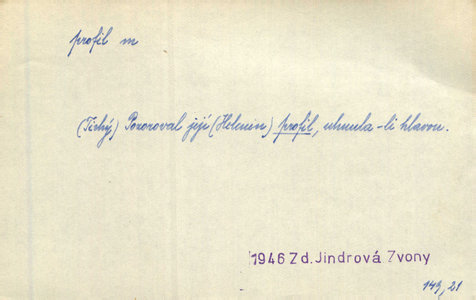 profil m
(Tichý) Pozoroval její (Helenin) profil, uhnula-li hlavou.
1946 Zd. Jindrová Zvony
149, 21